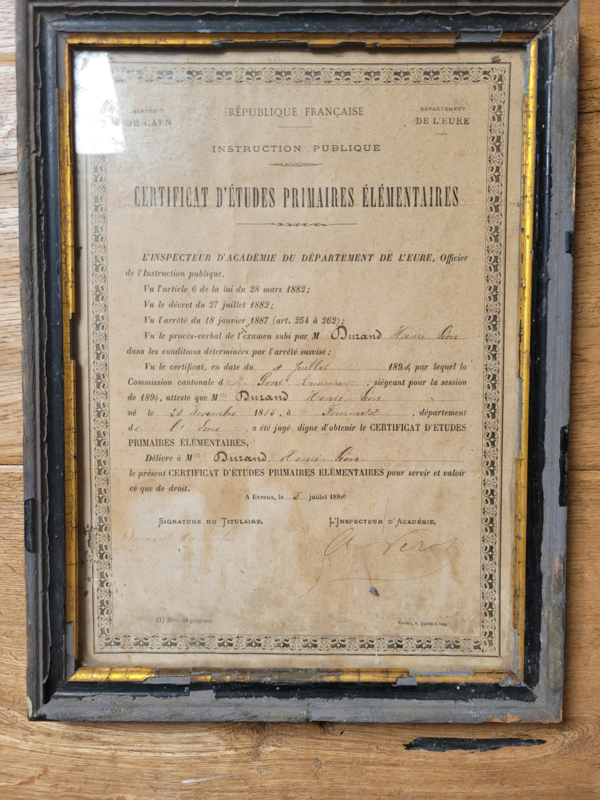 ACADÉMIE
DE CAEN
RÉPUBLIQUE FRANÇAISE
DÉPARTEMENT
DE L'EURE
INSTRUCTION PUBLIQUE
CERTIFICAT D'ÉTUDES PRIMAIRES ÉLÉMENTAIRES
L'INSPECTEUR D'ACADÉMIE DU DÉPARTEMENT DE L'EURE, Officier
de l'Instruction publique,
Vu l'article 6 de la loi du 28 mars 1882;
Vu le décret du 27 juillet 1882;
Vu l'arrêté du 18 janvier 1887 (art. 254 à 262);
Vu le procès-verbal de l'examen subi par M Durand Henri Léon
dans les conditions déterminées par l'arrêté susvisé;
Vu le certificat, en date du 4 Juillet 189, par lequel la
Commission cantonale d, siégeant pour la session
de 189, atteste que M Durand Henri Léon
né le Novembre, à, département
de l'Eure, a été jugé digne d'obtenir le CERTIFICAT D'ÉTUDES
PRIMAIRES ÉLÉMENTAIRES,
Délivre à M Durand Henri Léon
le présent CERTIFICAT D'ÉTUDES PRIMAIRES ÉLÉMENTAIRES pour servir et valoir
ce que de droit.
A Evreux, le 5 juillet 189
SIGNATURE DU TITULAIRE,
L'INSPECTEUR D'ACADÉMIE,
(1) Nom et prénoms.